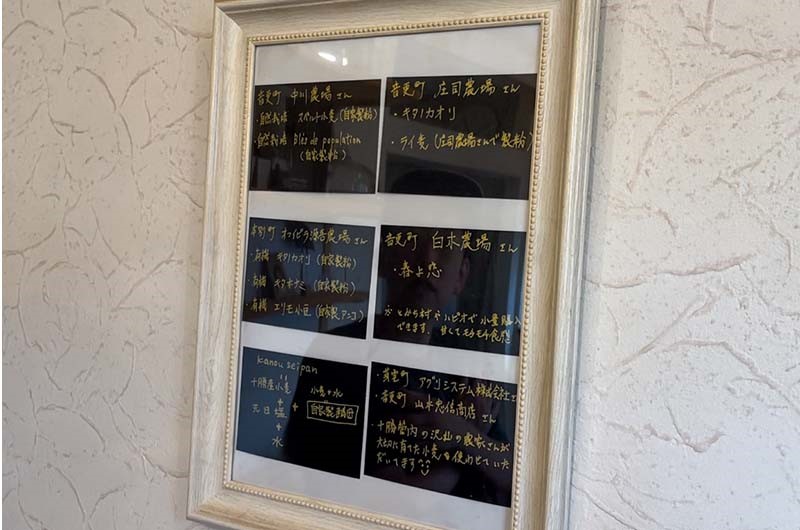 音更町 中川農場さん
・自然栽培 スペルト小麦(自家製粉)
・自然栽培 Blés de population
(自家製粉)
音更町 庄司農場さん
・キタノカオリ
・ライ麦(庄司農場さんで製粉)
本別町 オマイビラ源吾農場さん
・有機 キタノカオリ(自家製粉)
・有機 キタホナミ(自家製粉)
・有機 エリモ小豆(自家製アンコ)
音更町 白木農場さん
・春よ恋
とかち村やハピオで少量購入
できます。甘くてモチモチ食感
kanou seipan
十勝産小麦
+
元日塩
+
水
小麦+水
自家製酵母
・芽室町 アグリシステム株式会社さん
・音更町 山本忠信商店さん
・十勝管内の沢山の農家さんが
大切に育てた小麦を使わせていた
だいてます